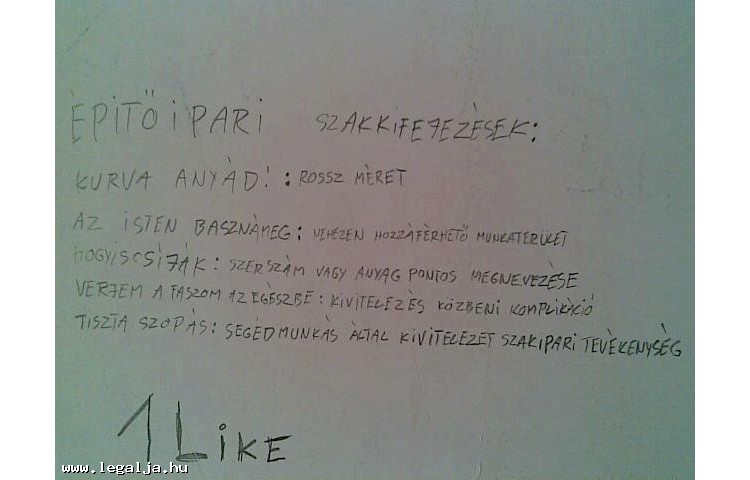 ÉPITŐIPARI SZAKKIFEJEZÉSEK:
KURVA ANYÁD!: ROSSZ MÉRET
AZ ISTEN BASZNÁMEG: NEHEZEN HOZZÁFÉRHETŐ MUNKATERÜLET
HOGYISCSIJÁK: SZERSZÁM VAGY ANYAG PONTOS MEGNEVEZÉSE
VERJEM A FASZOM AZ EGÉSZBE: KIVITELEZÉS KÖZBENI KOMPLIKÁCIÓ
TISZTA SZOPÁS: SEGÉDMUNKÁS ÁLTAL KIVITELEZET SZAKIPARI TEVÉKENYSÉG
1 LiKE
www.legalja.hu